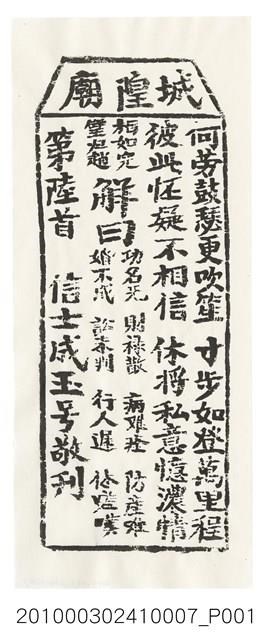 城隍廟
何勞鼓瑟更吹笙 寸步如登萬里程
彼此怀疑不相信 休將私意憶濃情
相如完
璧归趙
解曰
功名无 財禄散 病难痊 防產难
婚不成 訟未判 行人遲 休嗟嘆
第陸首 信士玉号敬刊
201000302410007_P001